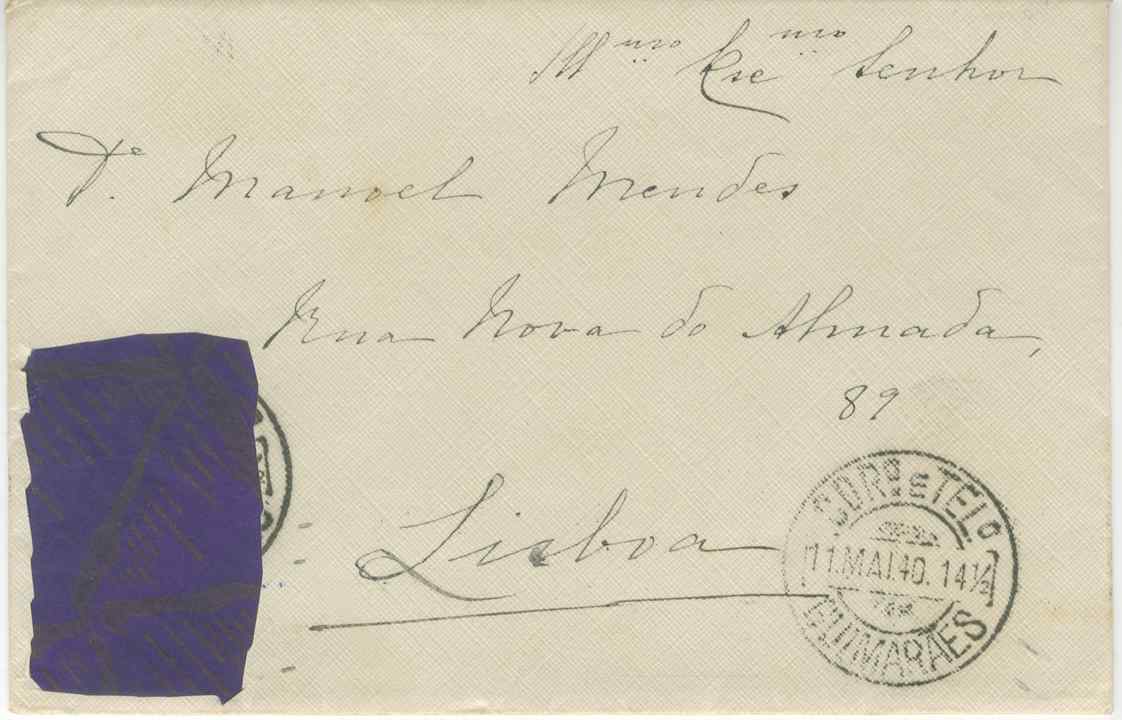 Illmo Exmo Senhor
Dr. Manoel Mendes
Rua Nova do Almada,
89
Lisboa
CORRO E TELO
11.MAI.40. 14½
GUIMARÃES